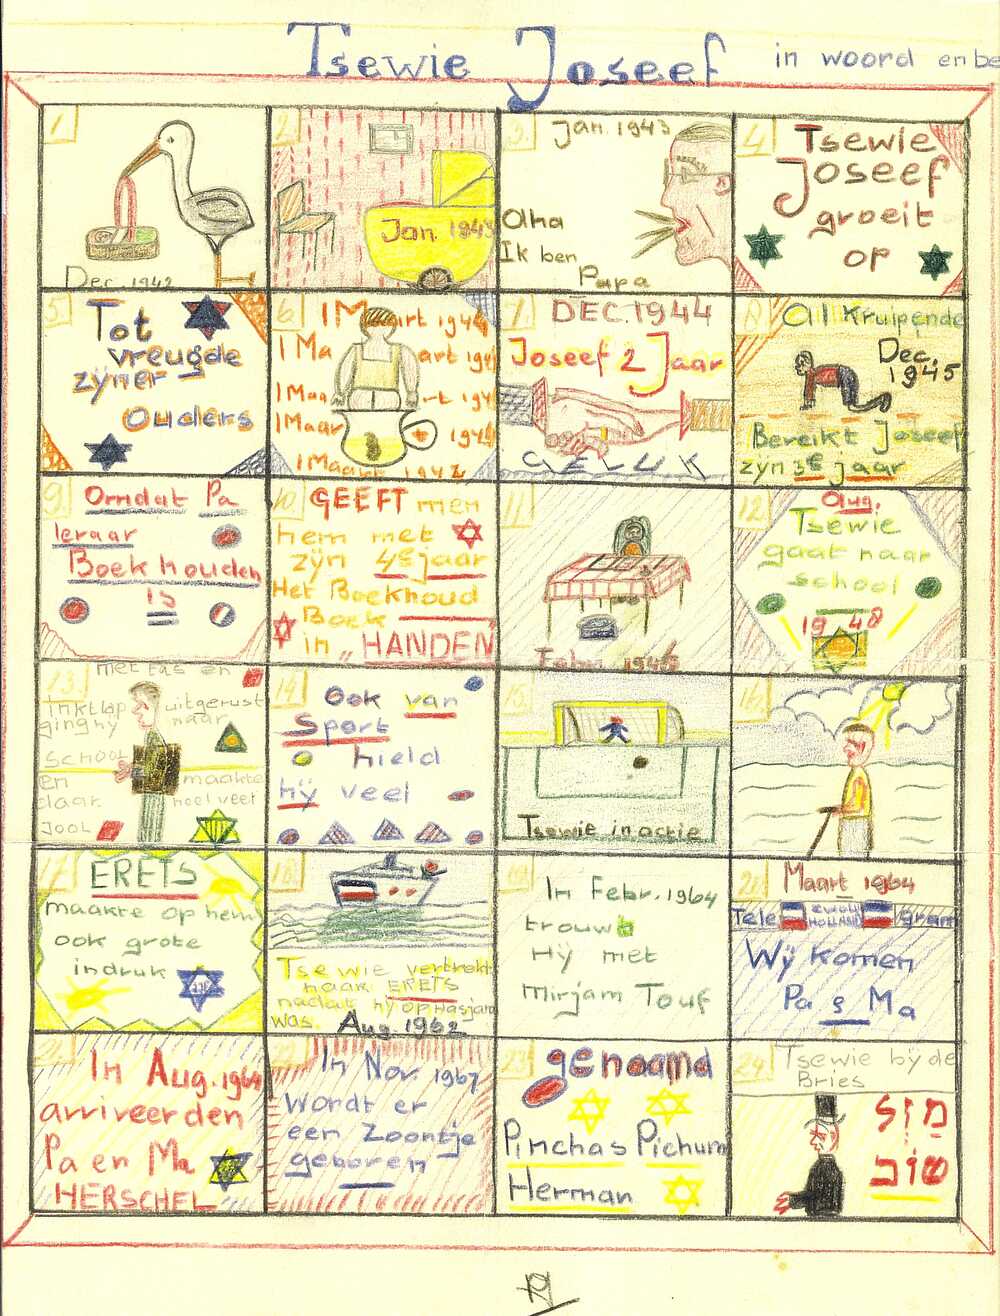 Tsewie Joseef in woord en be
1.
Dec. 1942
2.
Jan. 1943
3.
Jan. 1943
Aha
Ik ben
Papa
4.
Tsewie
Joseef
groeit
op
5.
Tot
vreugde
zijner
Ouders
6.
1 Maart 1944
1 Maart 1944
1 Maart 1944
1 Maart 1944
1 Maart 1942
7.
DEC. 1944
Joseef 2 Jaar
GELUK
8.
Al Kruipende
Dec.
1945
Bereikt Joseef
zijn 3e jaar
9.
Omdat Pa
leraar
Boekhouden
is
10.
GEEFT men
hem met
zijn 4e jaar
Het Boekhoud
Boek
in „HANDEN
11.
Febr. 1948
12.
Aug.
Tsewie
gaat naar
school
1948
13.
met tas en
inktlap uitgerust
ging hy naar
SCHOOL
en maakte
daar heel veel
JOOL
14.
Ook van
Sport
hield
hij veel
15.
Tsewie in actie
16.
17.
ERETS
maakte op hem
ook grote
indruk
18.
Tsewie vertrekt
naar ERETS
nadat hij op Hasjara
was. Aug. 1962
19.
In Febr. 1964
trouwt
Hij met
Mirjam Touf
20.
Maart 1964
Tele ZWOLLE HOLLAND gram
Wij komen
Pa & Ma
21.
In Aug. 1964
arriveerden
Pa en Ma
HERSCHEL
22.
In Nov. 1967
Wordt er
een Zoontje
geboren
23.
genaamd
Pinchas Pichum
Herman
24.
Tsewie bij de
Bries
מזל
טוב